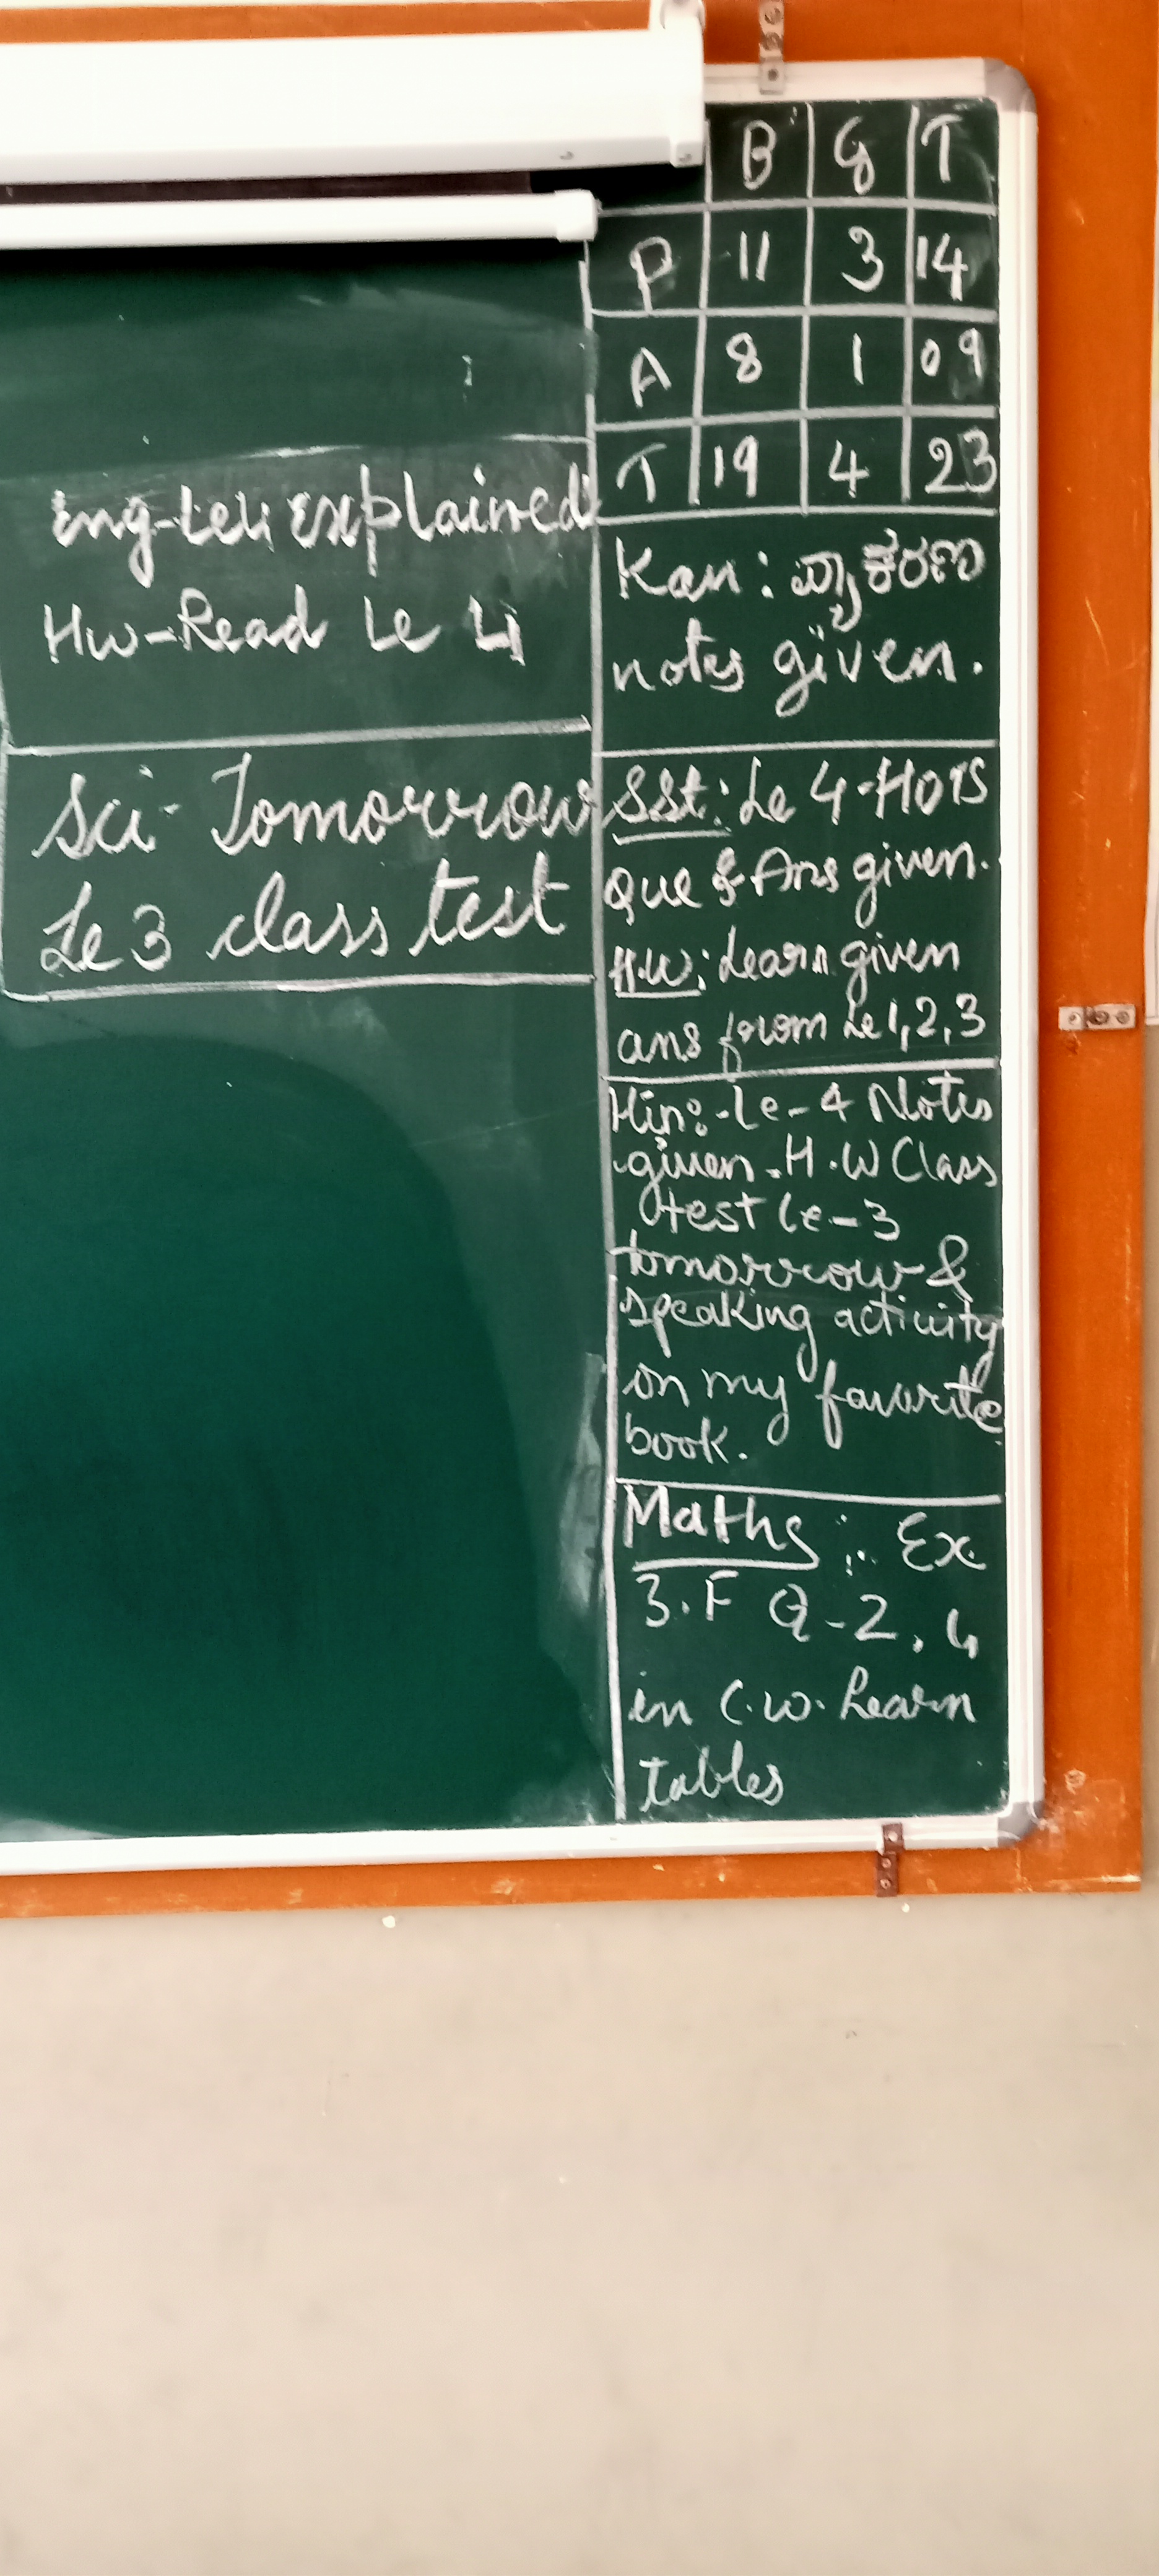 B G T
P 11 3 14
A 8 1 09
T 19 4 23
Eng-Le4 Explained
Hw-Read Le 4
Sci- Tomorrow
Le 3 class test
Kan: ವ್ಯಾಕರಣ
notes given.
SSt: Le 4-HOTS
Que & Ans given.
H.W: Learn given
ans from Le 1,2,3
Hin:-Le-4 Notes
given-H.W Class
test Le-3
tomorrow &
speaking activity
on my favorite
book.
Maths: Ex
3.F Q-2, 4
in C.W. Learn
tables